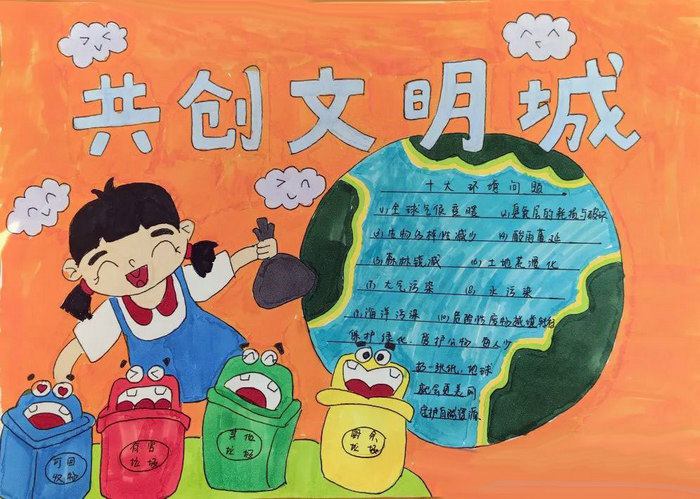 共创文明城
十大环境问题
(1)全球气候变暖 (2)臭氧层的耗损与破坏
(3)生物多样性减少 (4)酸雨蔓延
(5)森林锐减 (6)土地荒漠化
(7)大气污染 (8)水污染
(9)海洋污染 (10)危险性废物越境转移
保护绿化、爱护公物 每人少
扔一纸纸,地球
就会更美网
守护自然资源
可回
收物
有害
垃圾
其他
垃圾
厨余
垃圾